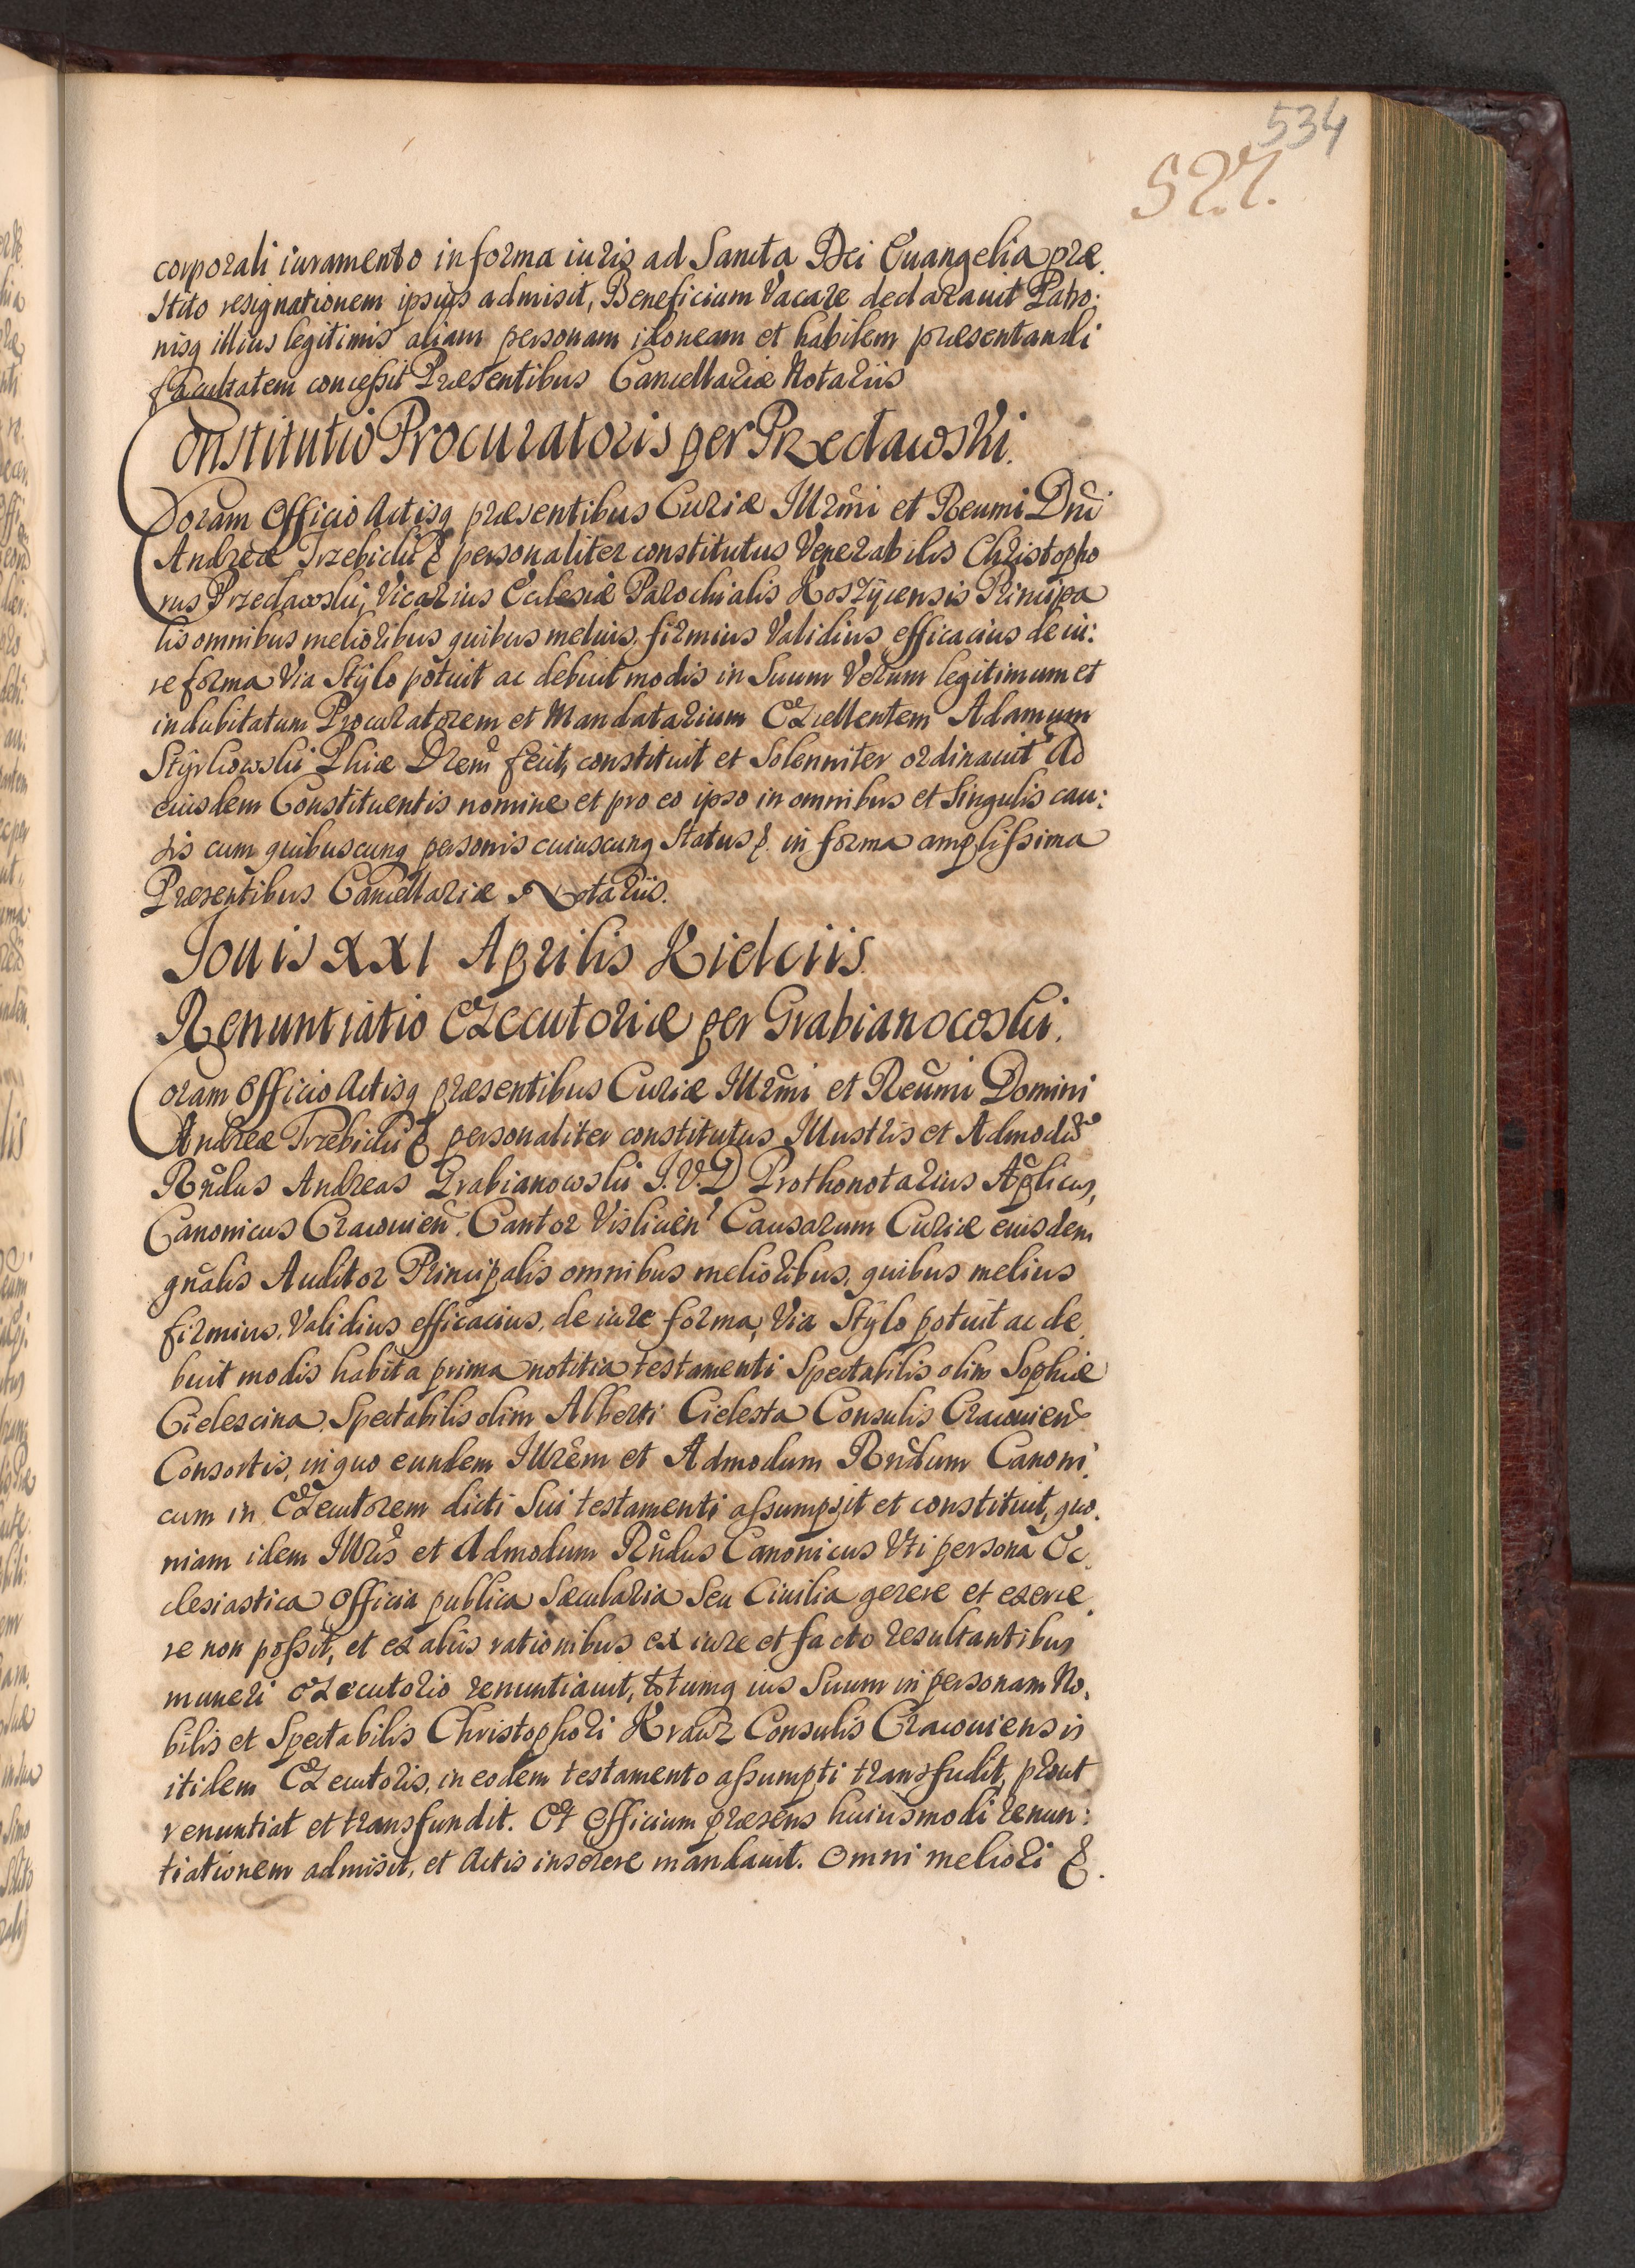 534
527.
corporali iuramento in forma iuris ad Sancta Dei Euangelia præ.
stito resignationem ipsius admisit, Beneficium Vacare declarauit Patro:
nisq illius legitimis aliam personam idoneam et habilem præsentandi
facultatem concessit Præsentibus Cancellariæ Notariis
Constitutio Procuratoris per Przedawski.
Coram Officio Actisq præsentibus Curiæ Illrmi et Reumi Dni
Andreæ Trzebicki & personaliter constitutus Venerabilis Christopho
rus Przedawski, Vicarius Ecclesiæ Parochialis Koszÿcensis Principa
lis omnibus melioribus quibus melius, firmius Validius efficacius de iu:
re forma Via Stÿlo potuit ac debuit modis in Suum Verum legitimum et
indubitatum Procuratorem et Mandatarium Excellentem Adamum
Stÿrkowski Phiæ Drem fecit, constituit et Solenniter ordinauit Ad
eiusdem Constituentis nomine et pro eo ipso in omnibus et Singulis cau:
sis cum quibuscunq personis cuiuscunq Status & in forma amplissima
Præsentibus Cancellariæ Notariis.
Iouis XXI Aprilis Kielciis
Renuntiatio Executoriæ per Grabianowski.
Coram Officio Actisq præsentibus Curiæ Illrmi et Reumi Domini
Andreæ Trzebicki & personaliter constitutus Illustris et Admodu
Rndus Andreas Grabianowski I.V.D Prothonotarius Aplicus,
Canonicus Cracouien. Cantor Vislicen Causarum Curiæ eiusdem
gnalis Auditor Principalis omnibus melioribus, quibus melius
firmius, Validius efficacius, de iure forma, Via Stÿlo potuit ac de
buit modis habita prima notitia testamenti Spectabilis olim Sophiæ
Cielescina Spectabilis olim Alberti Cielesta Consulis Cracouien
Consortis, in quo eundem Illrem et Admodum Rndum Canoni.
cum in Executorem dicti Sui testamenti assumpsit et constituit, quo.
niam idem Illris et Admodum Rndus Canonicus Vti persona Ec.
clesiastica Officia publica Sæcularia Seu Ciuilia gerere et exerce.
re non possit, et ex aliis rationibus ex iure et facto resultantibus
muneri executorio renuntiauit, totumq ius Suum in personam No.
bilis et Spectabilis Christophori Krauz Consulis Cracouiensis
itidem Executoris, in eodem testamento assumpti transfudit, prout
renuntiat et transfundit. Et Officium præsens huiusmodi renun:
tiationem admisit, et Actis inserere mandauit. Omni meliori &.